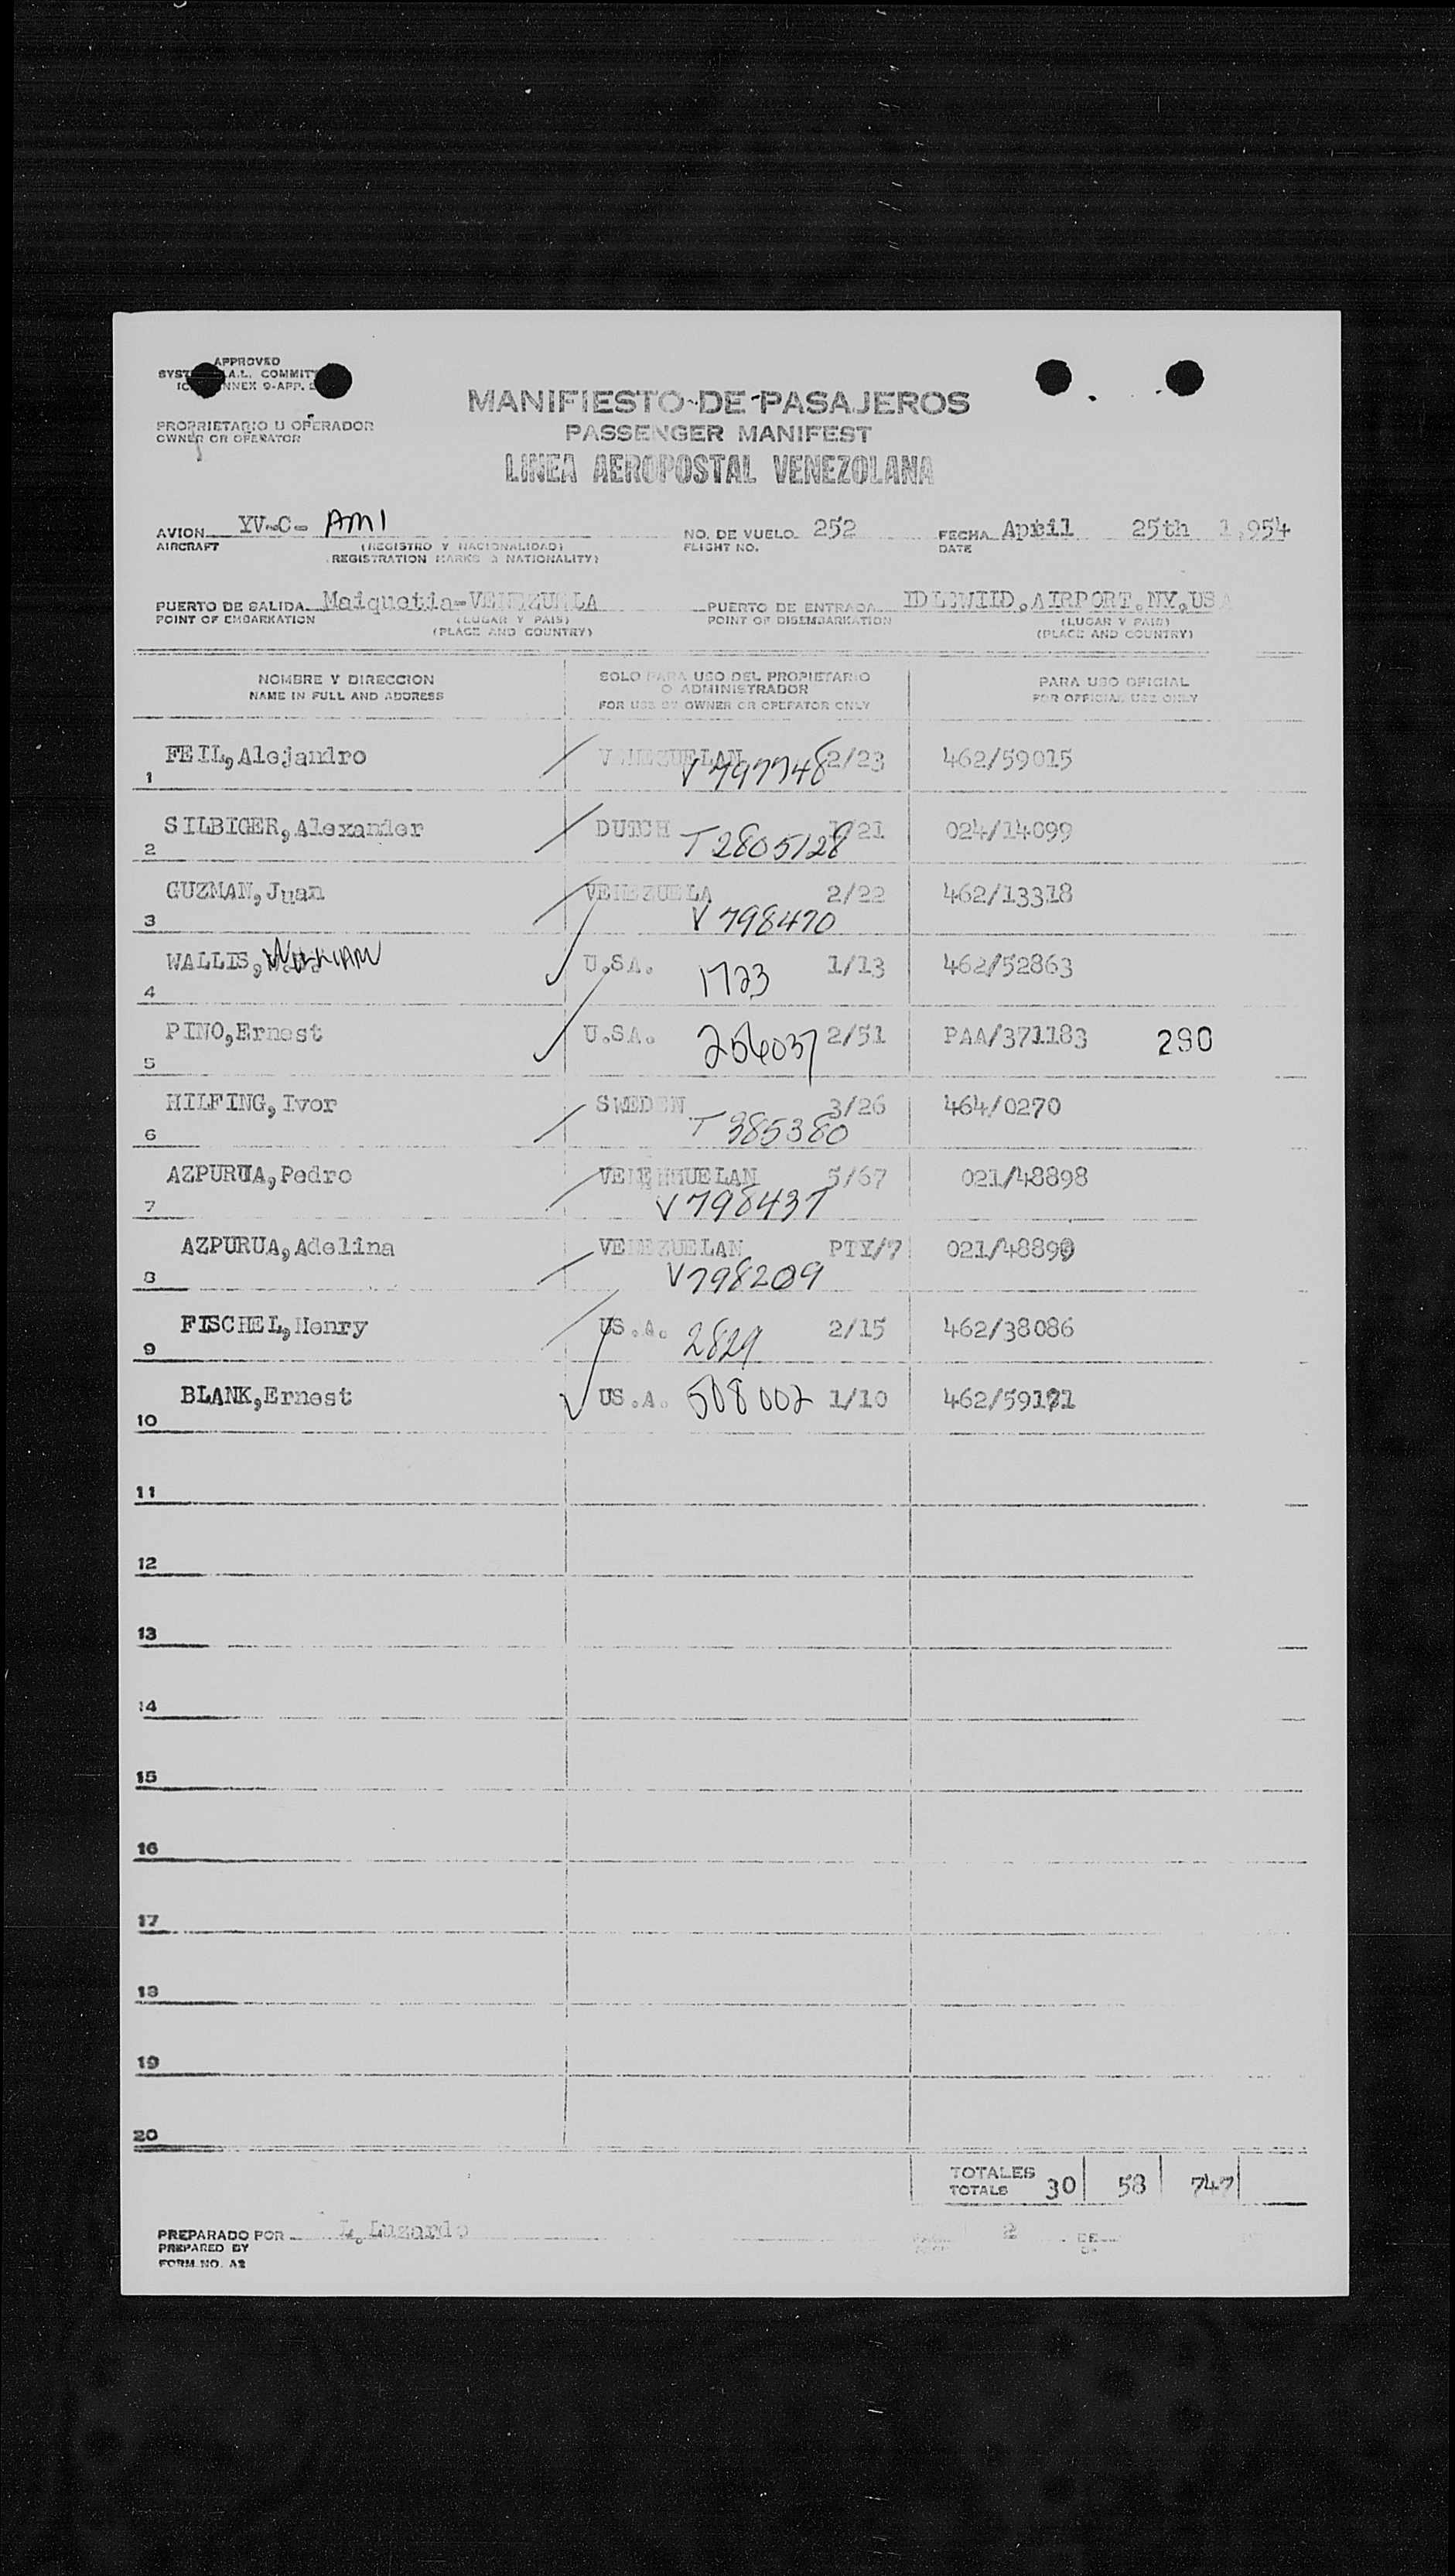 APPROVED
A.L. COMMIT
NNEX 9-APP.
MANIFIESTO DE PASAJEROS
PROPRIETARIO U OPERADOR
OWNER OR OPERATOR
PASSENGER MANIFEST
LINEA AEROPOSTAL VENEZOLANA
AVION YV-C- AMI NO. DE VUELO 252 FECHA April 25th 1,954
AIRCRAFT (REGISTRO Y NACIONALIDAD) FLIGHT NO. DATE
REGISTRATION MARKS & NATIONALITY)
PUERTO DE SALIDA Maiquetia-VENEZUELA PUERTO DE ENTRADA IDLEWIID,AIRPORT.NY.USA
POINT OF EMBARKATION (LUGAR Y PAIS) POINT OF DISEMBARKATION (LUGAR Y PAIS)
(PLACE AND COUNTRY) (PLACE AND COUNTRY)
NOMBRE Y DIRECCION SOLO PARA USO DEL PROPIETARIO PARA USO OFICIAL
NAME IN FULL AND ADDRESS O ADMINISTRADOR FOR OFFICIAL USE ONLY
FOR USE BY OWNER OR OPERATOR ONLY
FEIL,Alejandro VENEZUELAN 2/23 462/59015
1 V797748
SILBIGER,Alexander DUTCH 1/21 024/14099
2 T2805128
GUZMAN,Juan VENEZUELA 2/22 462/13318
3 V798470
WALLIS, WILLIAM U.SA. 1/13 462/52863
4 1723
PINO,Ernest U.SA. 256037 2/51 PAA/371183 290
5
HILFING,Ivor SWEDEN 3/26 464/0270
6 T385380
AZPURUA,Pedro 5/67 021/48898
7 V798437
AZPURUA,Adelina VENEZUELAN PTY/7 021/48899
8 V798209
FISCHEL,Henry US.A. 2829 2/15 462/38086
9
BLANK,Ernest US.A. 508002 1/10 462/59171
10
11
12
13
14
15
16
17
18
19
20
TOTALES
TOTALS 30 58 747
PREPARADO POR L. Luzardo 2 DE
PREPARED BY
FORM NO. A2